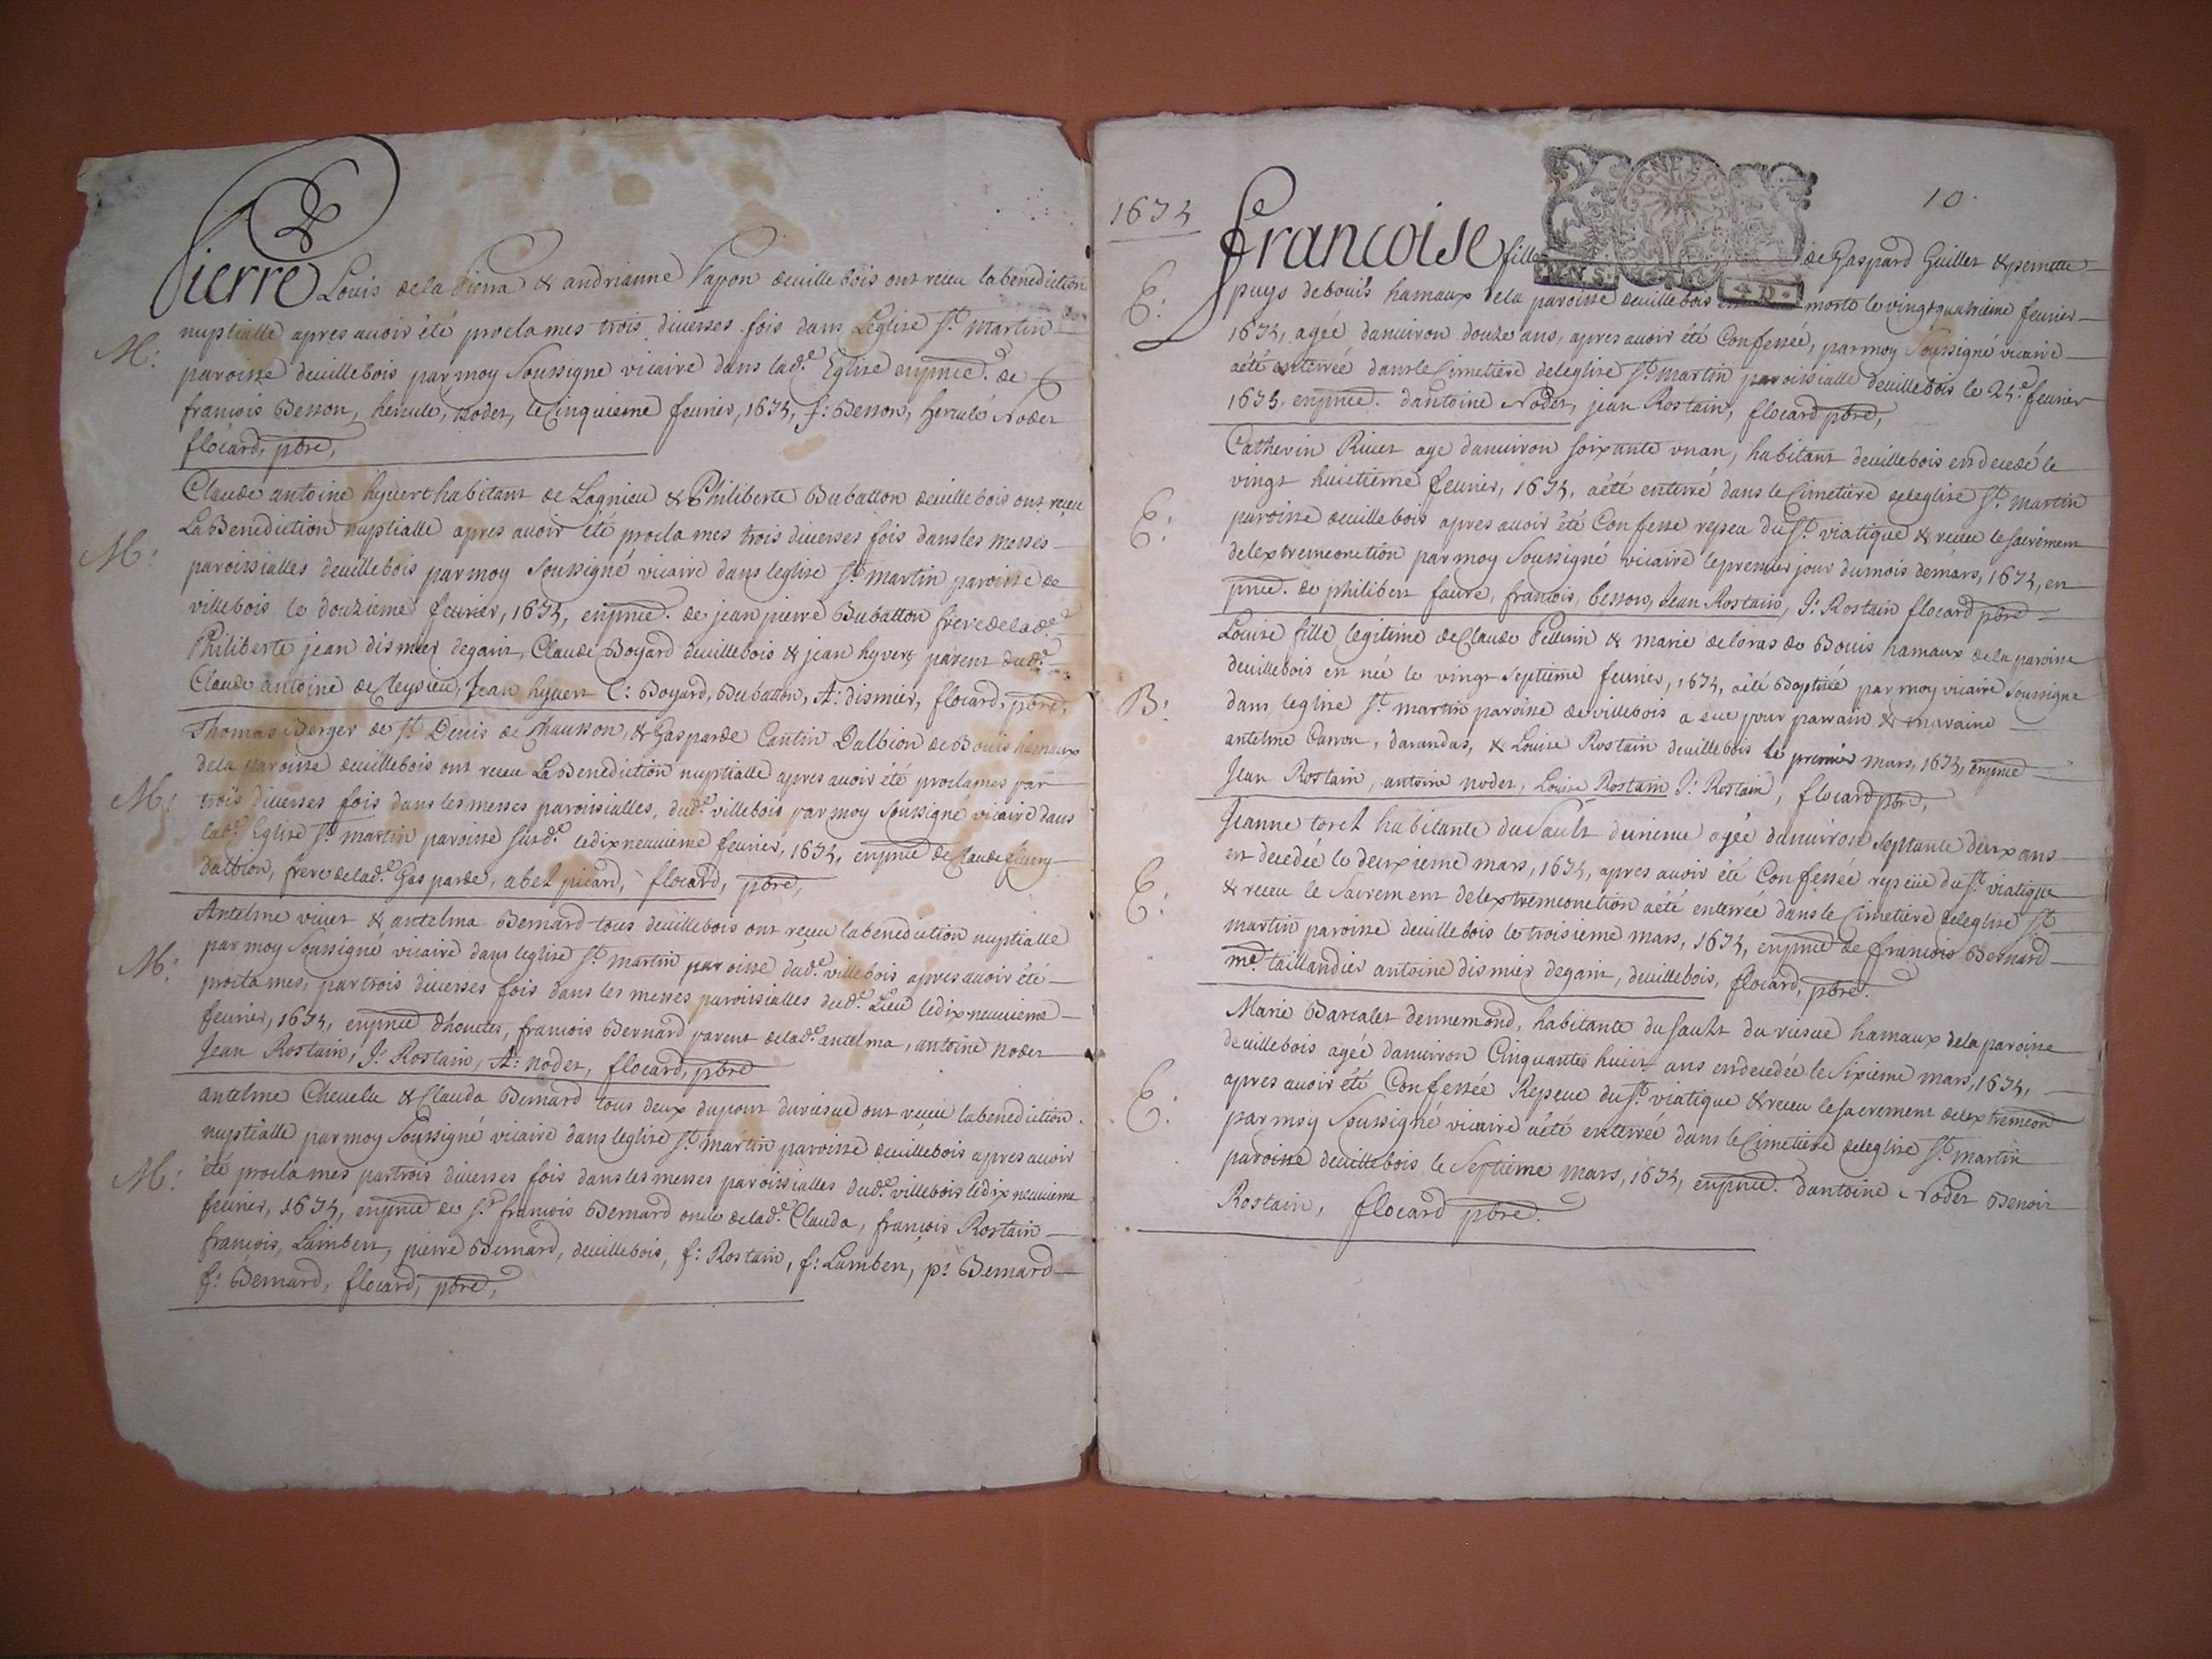 Pierre Louis dela Pierra & andrianne Papon deuillebois ont receu la benediction
nuptialle apres auoir été proclames trois diuerses fois dans Leglise St. martin
M:
paroisse deuillebois parmoy Soussigné vicaire dans lade. Eglise enpnce. de
francois Besson, hercule, noder, le Cinquieme feurier, 1674, f: Besson, Hercule Noder
flocard, pbre,
Claude antoine hyuert habitant de Lagnieu & Philiberte Dubatton deuillebois ont receu
La Benediction nuptialle apres auoir été proclames trois diuerses fois dans les messes
M:
paroissialles deuillebois parmoy Soussigné vicaire dans leglise St. martin paroisse de
villebois le douzieme feurier, 1674, enpnce. de jean pierre Dubatton frere delade.
Philiberte jean dismier degaint, Claude Boyard deuillebois & jean hyuert parent dude.
Claude antoine de Cleysieu, Jean hyuert C: Boyard, Dubatton, A: dismier, flocard, pbre,
Thomas Berger de St. Denis de Chausson, & Gasparde Cantin Dalbion de Bouis hamaux
dela paroisse deuillebois ont receu La Benediction nuptialle apres auoir été proclames par
M:
trois diuerses fois dans les messes paroissialles, dude. villebois parmoy Soussigné vicaire dans
lade. Eglise St. martin paroisse susde. le dixneuuieme feurier, 1674, enpnce de Claude
dalbion, frere delade. Gasparde, abel picard, flocard, pbre,
Antelme viuet & antelma Bernard tous deuillebois ont receu la benediction nuptialle
par moy Soussigné vicaire dans leglise St. martin paroisse dude. villebois apres auoir été
M:
proclames, par trois diuerses fois dans les messes paroissialles dude. Lieu le dixneuuieme
feurier, 1674, enpnce dhonetes, francois Bernard parent delade. antelma, antoine noder
Jean Rostain, J: Rostain, A: noder, flocard, pbre
antelme Cheuelu & Clauda Bernard tous deux dupont durieue ont receu la benediction
nuptialle par moy Soussigné vicaire dans leglise St. martin paroisse deuillebois apres auoir
M:
été proclames partrois diuerses fois dans les messes paroissialles dude. villebois le dixneuuieme
feurier, 1674, enpnce de Sr. francois Bernard oncle delade. Clauda, francois Rostain
francois, Lambert, pierre Bernard, deuillebois, f: Rostain, f: Lambert, p: Bernard
f: Bernard, flocard, pbre,
1674
10.
francoise fille de Gaspard Guiller & pernette
E:
puys debouis hamaux dela paroisse deuillebois est morte le vingtquatrieme feurier
1674, agée danuiron douze ans, apres auoir été Confessée, parmoy Soussigné vicaire
aété enterrée dans le Cimetiere deleglise St. martin paroissialle deuillebois le 25e. feurier
1674. enpnce. dantoine Noder, jean Rostain, flocard pbre,
Catherin Riuet age danuiron soixante vn an, habitant deuillebois est decedé le
vingt huictieme feurier, 1674, aété enterré dans le Cimetiere deleglise St. martin
E:
paroisse deuillebois apres auoir été Confesse repeu du St. viatique & receu le sacrement
delextremeonction parmoy Soussigné vicaire le premier jour dumois demars, 1674, en
pnce. de philibert faure, francois, besson, Jean Rostain, J: Rostain flocard pbre
Louise fille legitime de Claude Pellerin & marie deloras de Bouis hamaux dela paroisse
deuillebois est née le vingt Septieme feurier, 1674, aété Baptisée par moy vicaire Soussigné
B:
dans leglise St. martin paroisse de villebois a eue pour parrain & marraine
antelme Carron, darandas, & Louise Rostain deuillebois le premier mars, 1674, enpnce
Jean Rostain, antoine noder, Louise Rostain J: Rostain, flocard pbre,
Jeanne toret habitante du Sault durieue agée danuiron septante deux ans
est decedée le deuxieme mars, 1674, apres auoir été Confessée repeüe du St. viatique
E:
& receu le Sacrement delextremeonction aété enterrée dans le Cimetiere deleglise St.
martin paroisse deuillebois le troisieme mars, 1674, enpnce de francois Bernard
me. taillandier antoine dismier degaint, deuillebois, flocard, pbre.
Marie Barcalet dennemond, habitante du Sault du rieue hamaux dela paroisse
deuillebois agée danuiron Cinquante huict ans est decedée le Sixieme mars, 1674,
E:
apres auoir été Confessée Repeue du St. viatique & receu le Sacrement delextremeon
parmoy Soussigné vicaire aété enterrée dans le Cimetiere deleglise St. martin
paroisse deuillebois le Septieme mars, 1674, enpnce. dantoine Noder Benoit
Rostain, flocard pbre.